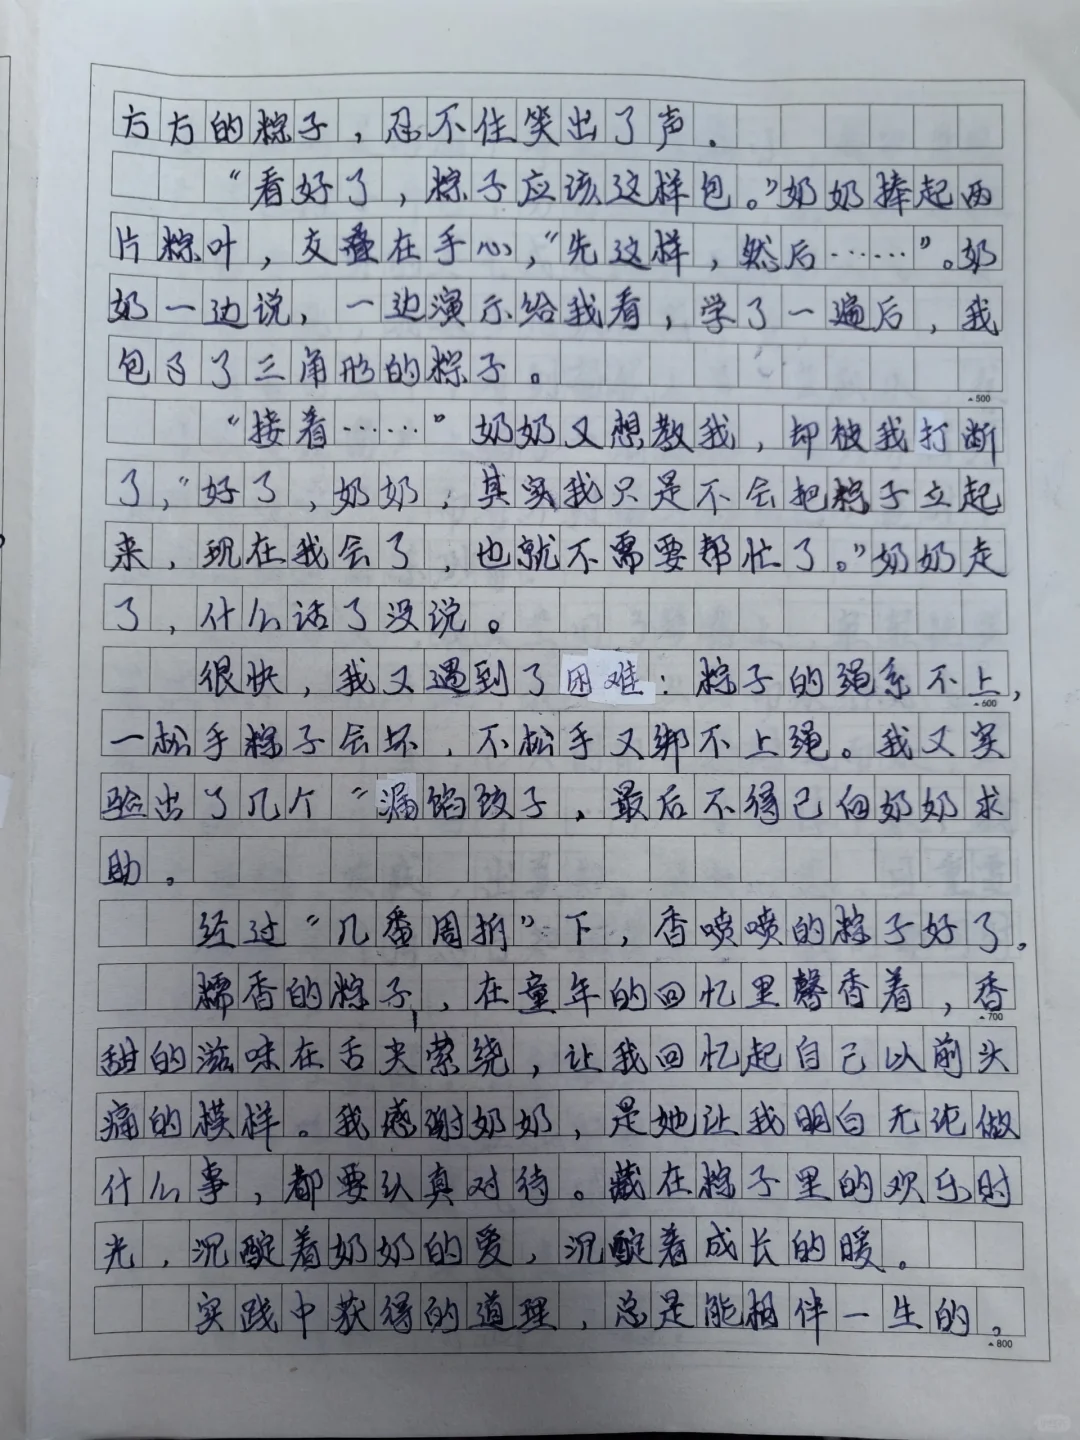 方方的粽子，忍不住笑出了声.
“看好了，粽子应该这样包。”奶奶捧起两
片粽叶，交叠在手心，“先这样，然后……”。奶
奶一边说，一边演示给我看，学了一遍后，我
包了三角形的粽子。
▲500
“接着……”奶奶又想教我，却被我打断
了，“好了，奶奶，其实我只是不会把粽子立起
来，现在我会了，也就不需要帮忙了。”奶奶走
了，什么话了没说。
很快，我又遇到了困难：粽子的绳系不上，
▲600
一松手粽子会坏，不松手又绑不上绳。我又实
验出了几个“漏馅饺子，最后不得已向奶奶求
助。
经过“几番周折”下，香喷喷的粽子好了。
糯香的粽子，在童年的回忆里馨香着，香
▲700
甜的滋味在舌尖萦绕，让我回忆起自己以前头
痛的模样。我感谢奶奶，是她让我明白无论做
什么事，都要认真对待。藏在粽子里的欢乐时
光，沉醇着奶奶的爱，沉醇着成长的暖。
实践中获得的道理，总是能相伴一生的。
▲800